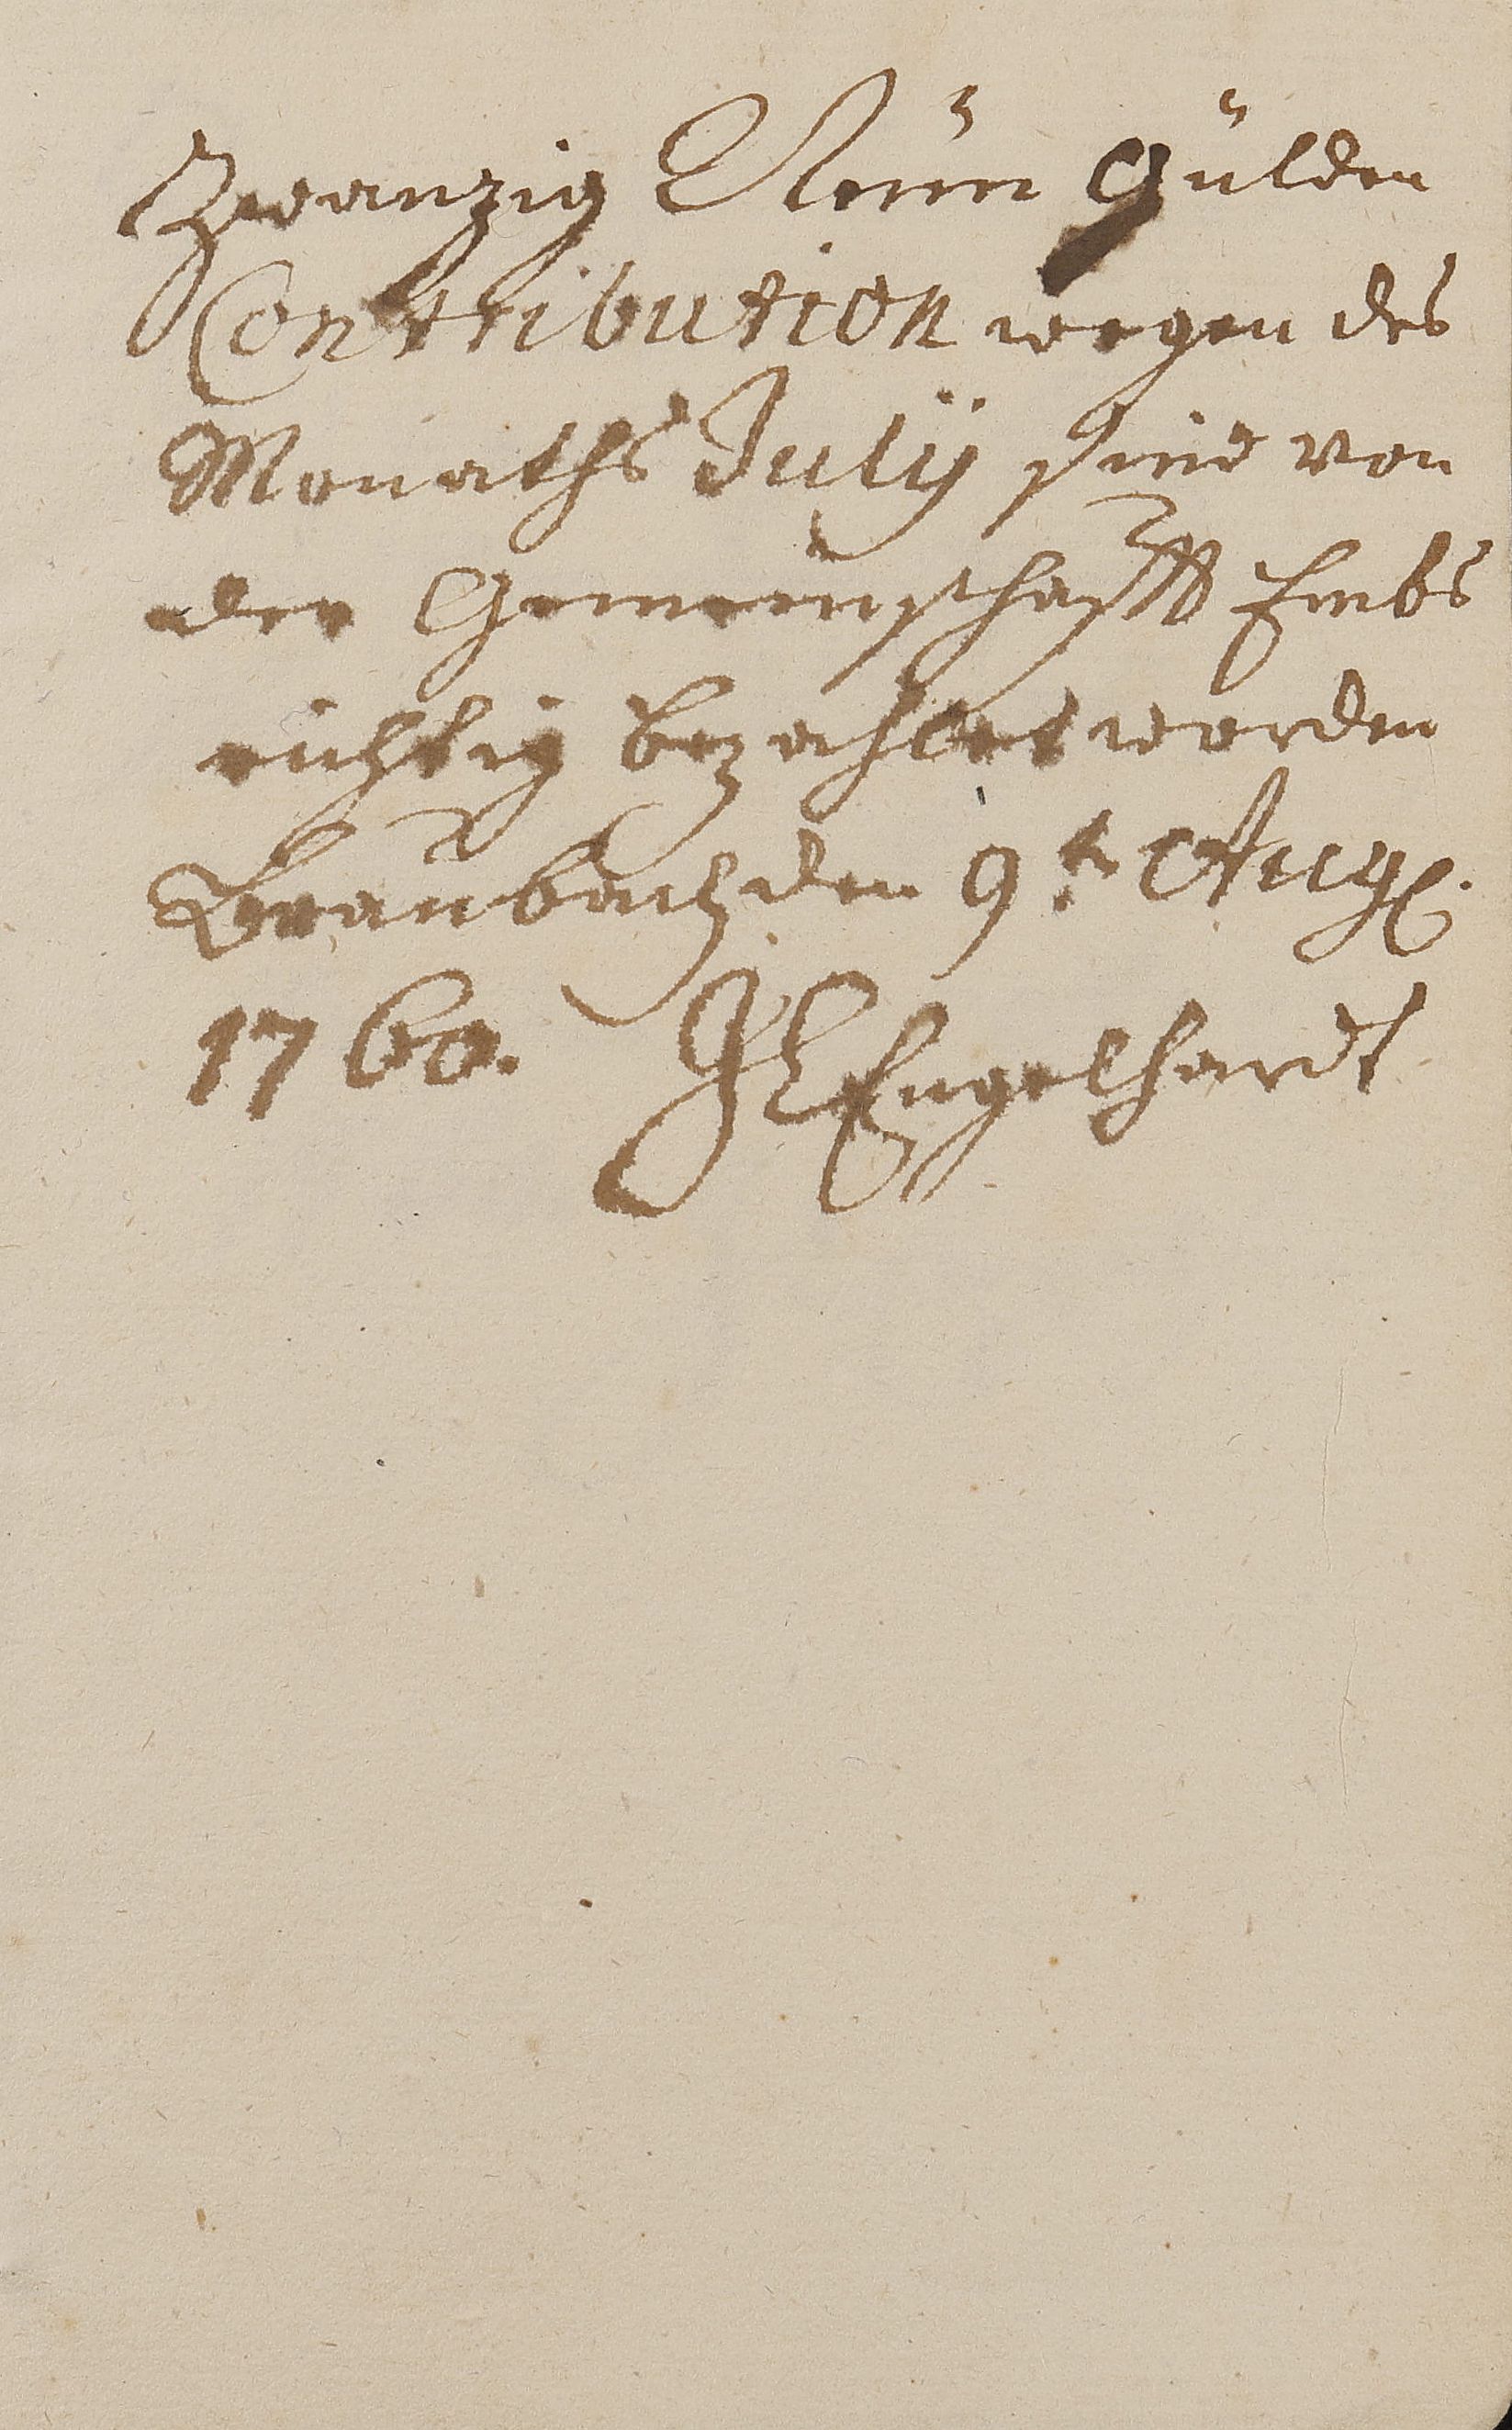 Zwanzig Neün Gülden
Contribution wegen des
Monaths Julÿ sind von
der Gemeinschafft Embs
richtig bezahlet worden
Braubach den 9t Aug.
1760. JLEngelhardt